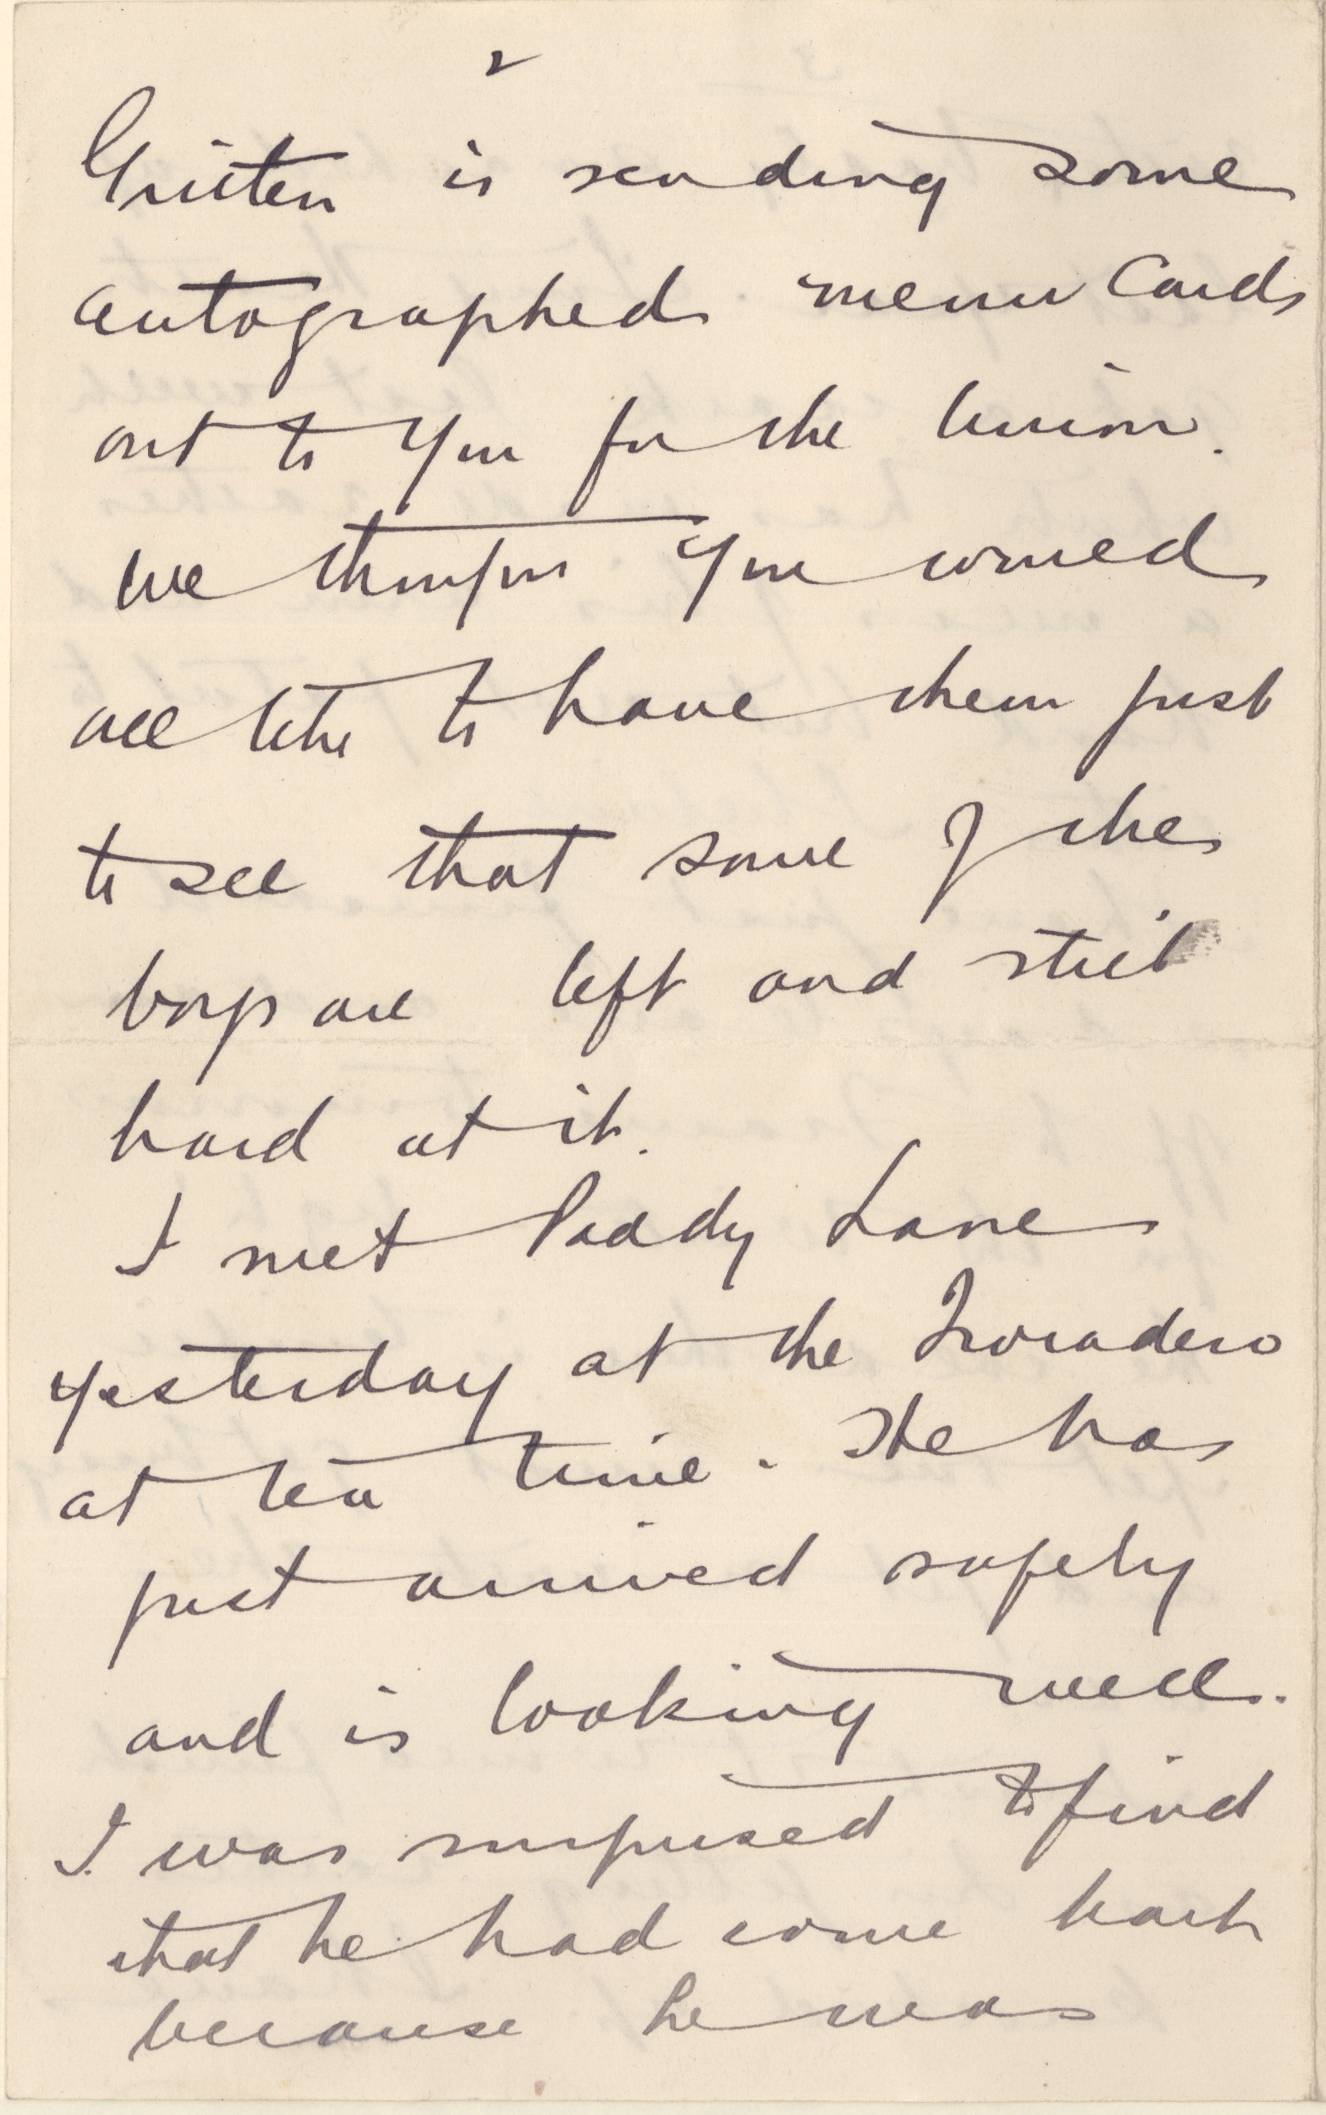 2
is sending some
autographed menu cards
out to you for the Union.
We thought you would
all like to have them just
to see that some of the
boys are left and still
hard at it.
I met Paddy Lane
yesterday at the Trocadero
at tea time. He has
just arrived safely
and is looking well.
I was surprised to find
that he had come back
because he was